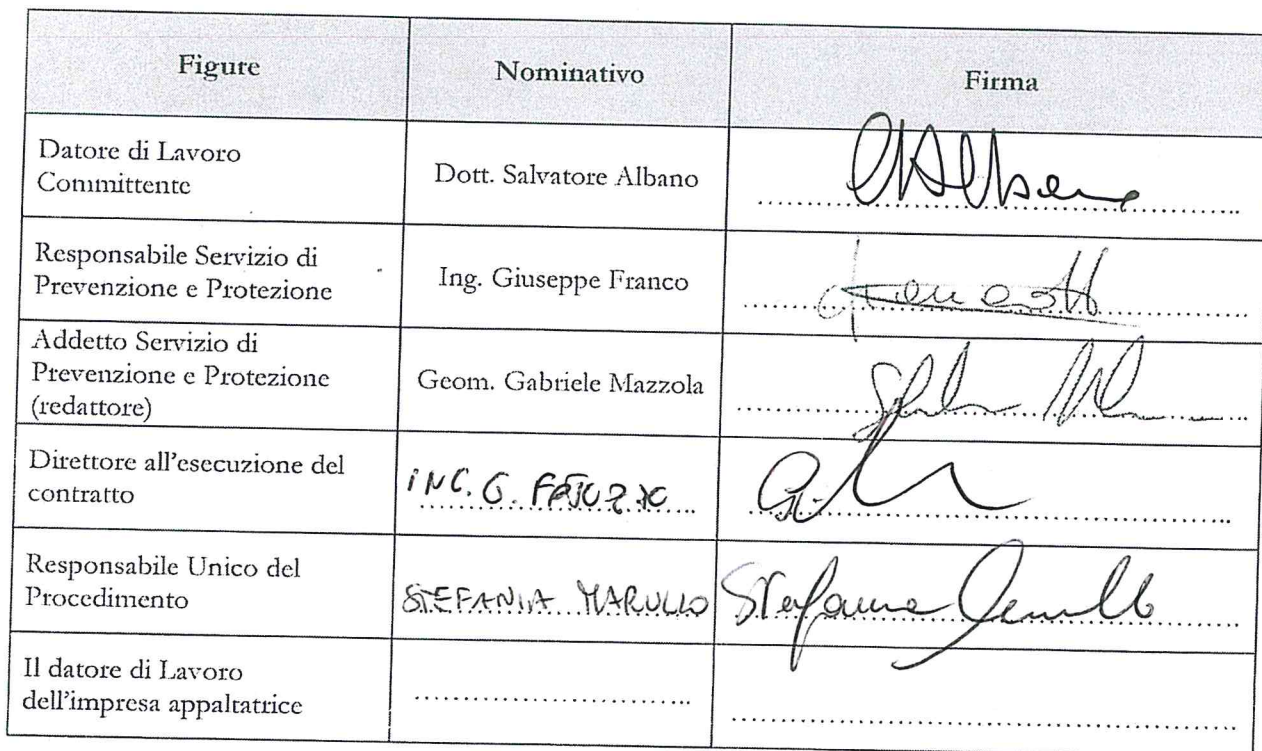 Figure Nominativo Firma
Datore di Lavoro
Committente
Dott. Salvatore Albano
Responsabile Servizio di
Prevenzione e Protezione
Ing. Giuseppe Franco
Addetto Servizio di
Prevenzione e Protezione
(redattore)
Geom. Gabriele Mazzola
Direttore all'esecuzione del
contratto
ING. G.
Responsabile Unico del
Procedimento
STEFANIA MARULLO
Stefania
Il datore di Lavoro
dell'impresa appaltatrice